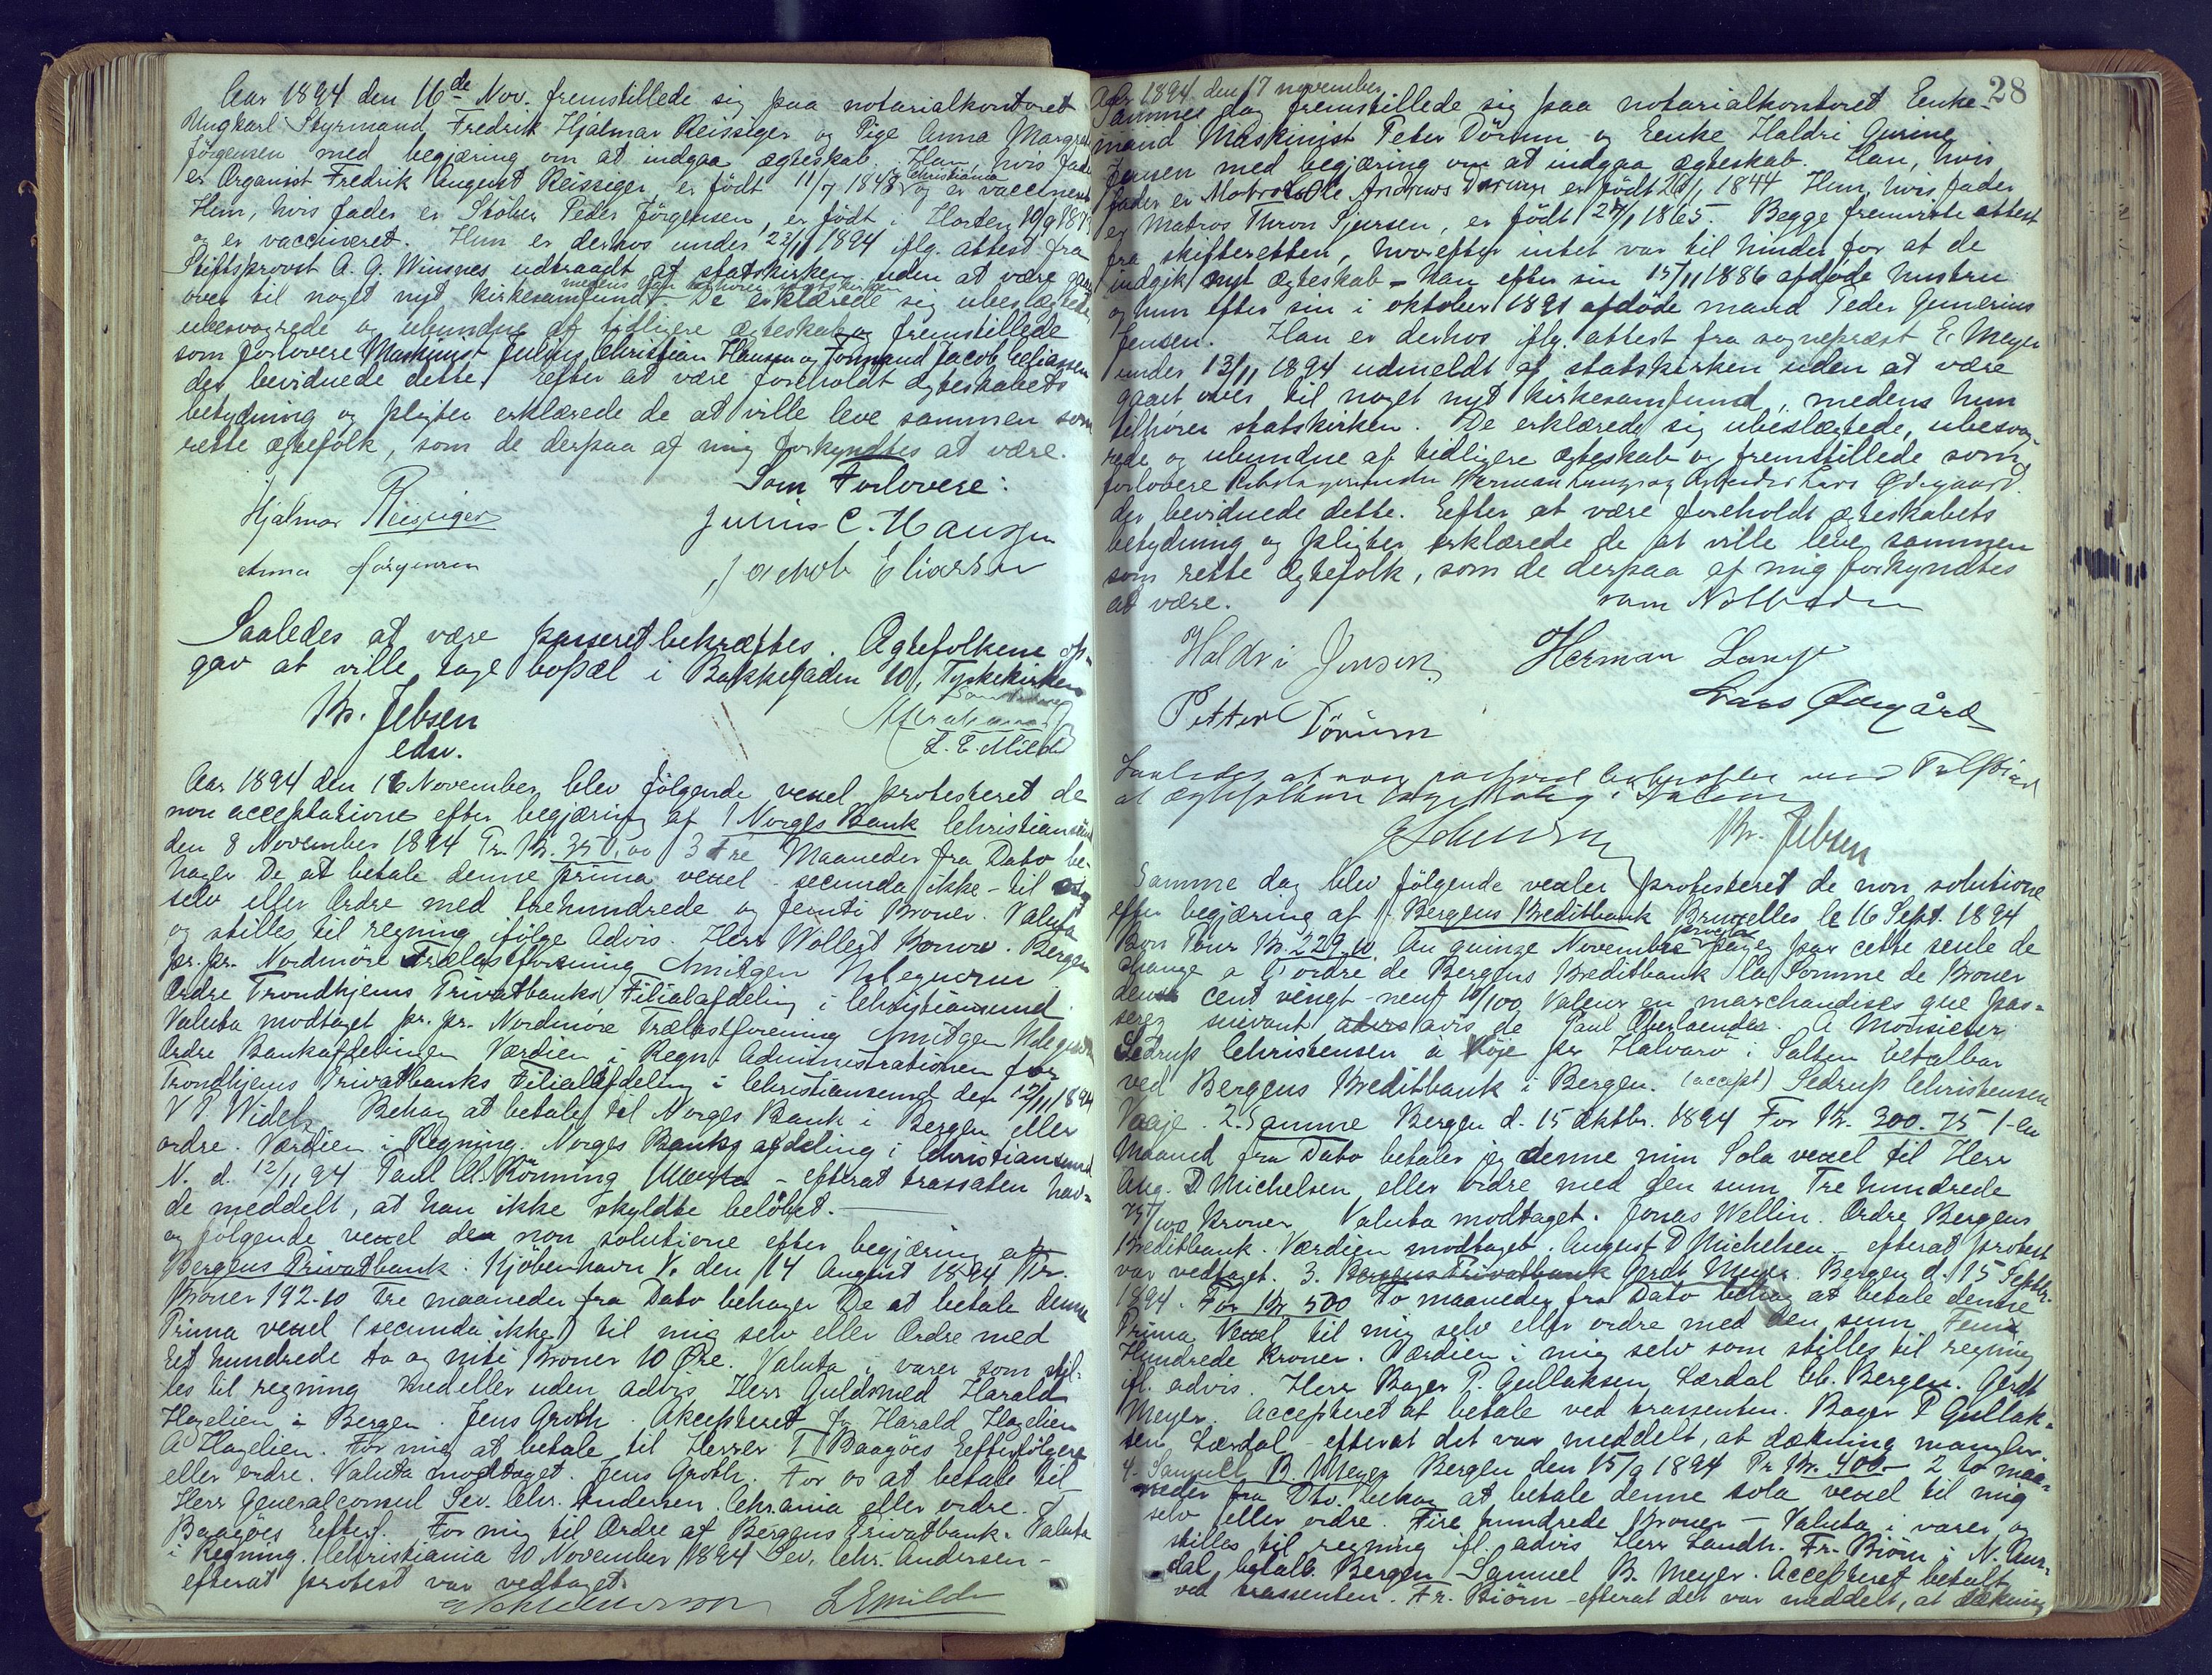 Aar 1894 den 16de Nov. fremstillede sig paa notarialkontoret
Ungkarl Styrmand Fredrik Hjalmar Reissiger og Pige Anna Margrete
Jörgensen med begjæring om at indgaa ægteskab. Han, hvis Fader
er Organist Fredrik August Reissiger, er født 11/7 1848 i Christiania og er vaccineret
Hun, hvis fader er Støber Peder Jörgensen, er født i Horten 10/9 1873
og er vaccineret. Hun er derhos under 22/8 1894 iflg. attest fra
Stiftsprovst A. G. Winsnes udtraadt af statskirken uden at være gaaet
over til noget nyt kirkesamfund medens han tilhører statskirken De erklærede sig ubeslægtede
ubesvogrede og ubundne af tidligere ægteskab og fremstillede
som forlovere Maskinist Julius Christian Hansen og Formand Jacob Eliassen
der bevidnede dette. Efter at være foreholdt ægteskabets
betydning og pligter erklærede de at ville leve sammen som
rette ægtefolk, som de derpaa af mig forkyndtes at være.
Som Forlovere:
Hjalmar Reissiger Julius C. Hanssen
Anna Jörgensen Jachob Eliassen
Saaledes at være passeret bekræftes. Ægtefolkene op-
gav at ville tage bopæl i Bakkegaden 10, Tyskekirken
Kr. Jebsen
edsv. L. E. Milde
Aar 1894 den 16 November blev følgende vexel protesteret de
non acceptatione efter begjæring af 1 Norges Bank Christianssund
den 8 November 1894 Pr. Kr. 350,00 3 tre Maaneder fra Dato be-
hager De at betale denne prima vexel - secunda ikke - til
selv eller Ordre med trehundrede og femti Kroner. Valuta
og stilles til regning ifølge Advis. Herr Wollert Konow. Bergen
pr. pr. Nordmöre Trælastforening
Ordre Trondhjems Privatbanks Filialafdeling i Christianssund
Valuta modtaget pr. pr. Nordmöre Trælastforening
Ordre Bankafdelingen Værdien i Regn. Administrationen for
Trondhjems Privatbanks Filialafdeling i Christianssund den 12/11 1894
V P. Widels Behag at betale til Norges Bank i Bergen eller
ordre. Værdien i Regning. Norges Banks afdeling i Christianssund
N. d. 12/11 94 Paul Al. Rönning - efterat trassaten hav-
de meddelt, at han ikke skyldte beløbet.
og følgende vexel den non solutione efter begjæring af
Bergens Privatbank. Kjöbenhavn V. den 14 August 1894 Pr.
Kroner 192.10 Tre maaneder fra Dato behager De at betale denne
Prima vexel (secunda ikke) til mig selv eller Ordre med
Eet hundrede to og niti Kroner 10 Øre. Valuta i varer som stil-
les til regning med eller uden advis Herr Guldsmed Harald
Hagelien i Bergen. Jens Groth. Akcepteret for Harald Hagelien
A Hagelien. For mig at betale til Herrer T Baagöes Eefterfølgere
eller ordre. Valuta modtaget. Jens Groth. For os at betale til
Herr Generalconsul Sev. Chr. Andersen. Chrania eller ordre. T
Baagöes Efterf. For mig til Ordre af Bergens Privatbank. Valuta
i Regning. Christiania 10 November 1894 Sev. Chr. Andersen -
efterat protest var vedtaget.
L E Milde
28
Aar 1894 den 17 november
Samme dag fremstillede sig paa notarialkontoret Enke-
mand Maskinist Peter Dörum og Enke Haldri Gurine
Jensen med begjæring om at indgaa ægteskab. Han, hvis
fader er Matros Ole Andreas Dørum er født 26/1 1844 Hun, hvis fader
er Matros Thron Sjursen, er født 27/1 1865. Begge fremviste attest
fra skifteretten, hvorefter intet var til hinder for at de
indgik nyt ægteskab - han efter sin 15/11 1886 afdøde hustru
og hun efter sin i oktober 1891 afdöde mand Peder Jemerius
Jensen. Han er derhos iflg. attest fra sognepræst E. Meyer
under 13/11 1894 udmeldt af statskirken uden at være
gaaet over til noget nyt kirkesamfund, medens hun
tilhører statskirken. De erklærede sig ubeslægtede, ubesvog-
rede og ubundne af tidligere ægteskab og fremstillede som
forlovere Herman Lange og Arbeider Lars Ødegaard.
der bevidnede dette. Eefter at være foreholdt ægteskabets
betydning og pligter, erklærede de at ville leve sammen
som rette Ægtefolk, som de derpaa af mig forkyndtes
at være.
Haldri Jensen Herman Lange
Petter Dörum Lars Ødegård
Saaledes at være passeret bekræftes med Tilføiende
at ægtefolkene
Kr. Jebsen
Samme dag blev følgende vexler protesteret de non solutione
efter begjæring af 1. Bergens Kreditbank Bruxelles le 16 Sept. 1894
Bon Pour Kr. 229,10. Au quinze Novembre payez par cette seule de
change a l'ordre de Bergens Kreditbank la Somme de Kroner
deux cent vingt-neuf 10/100 Valeur en marchandises que pas-
serez suivant avis de Paul Oberlaender. A Monsieur
Sedrup Christensen à Vöje pr Halvarö i Salten betalbar
ved Bergens Kreditbank i Bergen. (accept) Sedrup Christensen
Vaaje. 2. Samme Bergen d. 15 Oktbr. 1894 For Kr. 300.75 1-en
Maaned fra Dato betaler jeg denne min Sola vexel til Herr
Aug. D Michelsen eller ordre med den sum Tre hundrede
75/100 Kroner Valuta modtaget. Jonas Wellin. Ordre Bergens
Kreditbank. Værdien modtaget. August D Michelsen - efterat protest
var vedtaget. 3. Bergens Privatbank Gerdt Meyer. Bergen d. 15 Septbr.
1894. For Kr 500 To maaneder fra Dato behag at betale denne
Prima Vexel til mig selv eller ordre med den sum Fem
Hundrede Kroner. Værdien i mig selv som stilles til regning
ifl. advis. Herr Bager P. Gullaksen Lærdal bb. Bergen. Gerdt
Meyer. Accepteret at betale ved trassenten. Bager P Gullak-
sen Lærdal - efterat det var meddelt, at dækning mangler.
4. Samuel B. Meyer Bergen den 15/9 1894 Pr Kr. 400.- 2 to maa-
neder fra Dto. behag at betale denne sola vexel til mig
selv eller ordre. Fire hundrede Kroner - Valuta i varer og
stilles til regning ifl. advis Herr Landh. Fr. Biörn i N. Aur-
dal betalb. Bergen Samuel B. Meyer. Accepteret betalt
ved trassenten. Fr. Biörn - efterat det var meddelt, at dækning